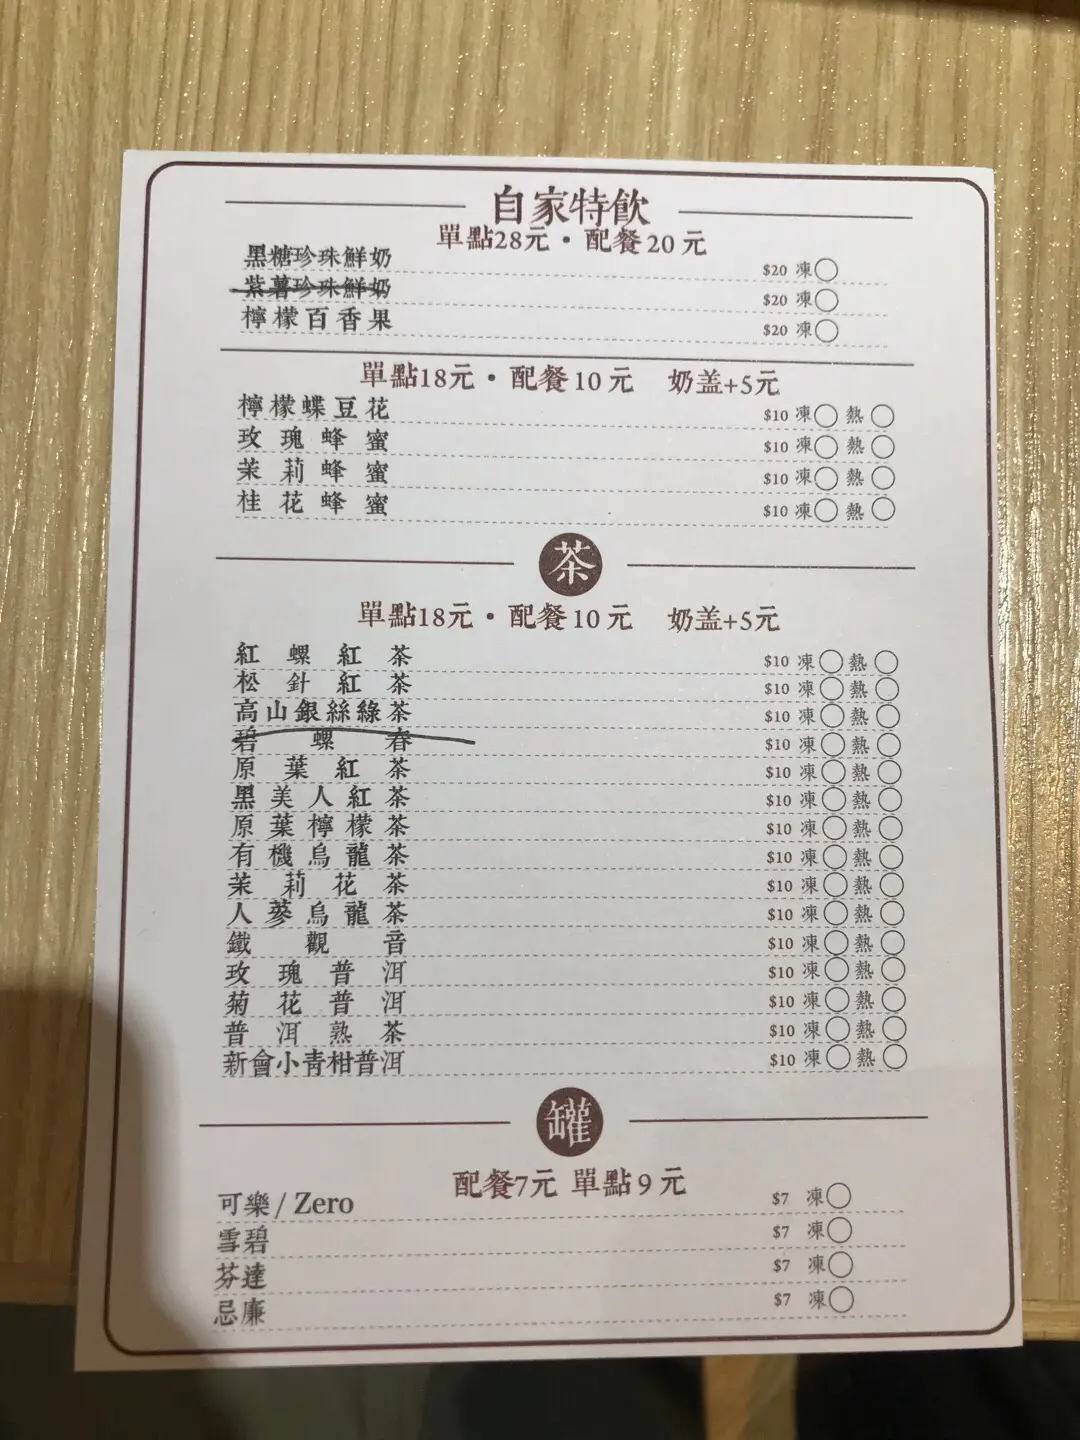 自家特飲
單點28元・配餐20元
黑糖珍珠鮮奶 $20 凍
紫薯珍珠鮮奶 $20 凍
檸檬百香果 $20 凍
單點18元・配餐10元 奶盖+5元
檸檬蝶豆花 $10 凍 熱
玫瑰蜂蜜 $10 凍 熱
茉莉蜂蜜 $10 凍 熱
桂花蜂蜜 $10 凍 熱
茶
單點18元・配餐10元 奶盖+5元
紅螺紅茶 $10 凍 熱
松針紅茶 $10 凍 熱
高山銀絲綠茶 $10 凍 熱
碧螺春 $10 凍 熱
原葉紅茶 $10 凍 熱
黑美人紅茶 $10 凍 熱
原葉檸檬茶 $10 凍 熱
有機烏龍茶 $10 凍 熱
茉莉花茶 $10 凍 熱
人蔘烏龍茶 $10 凍 熱
鐵觀音 $10 凍 熱
玫瑰普洱 $10 凍 熱
菊花普洱 $10 凍 熱
普洱熟茶 $10 凍 熱
新會小青柑普洱 $10 凍 熱
罐
配餐7元 單點9元
可樂/Zero $7 凍
雪碧 $7 凍
芬達 $7 凍
忌廉 $7 凍